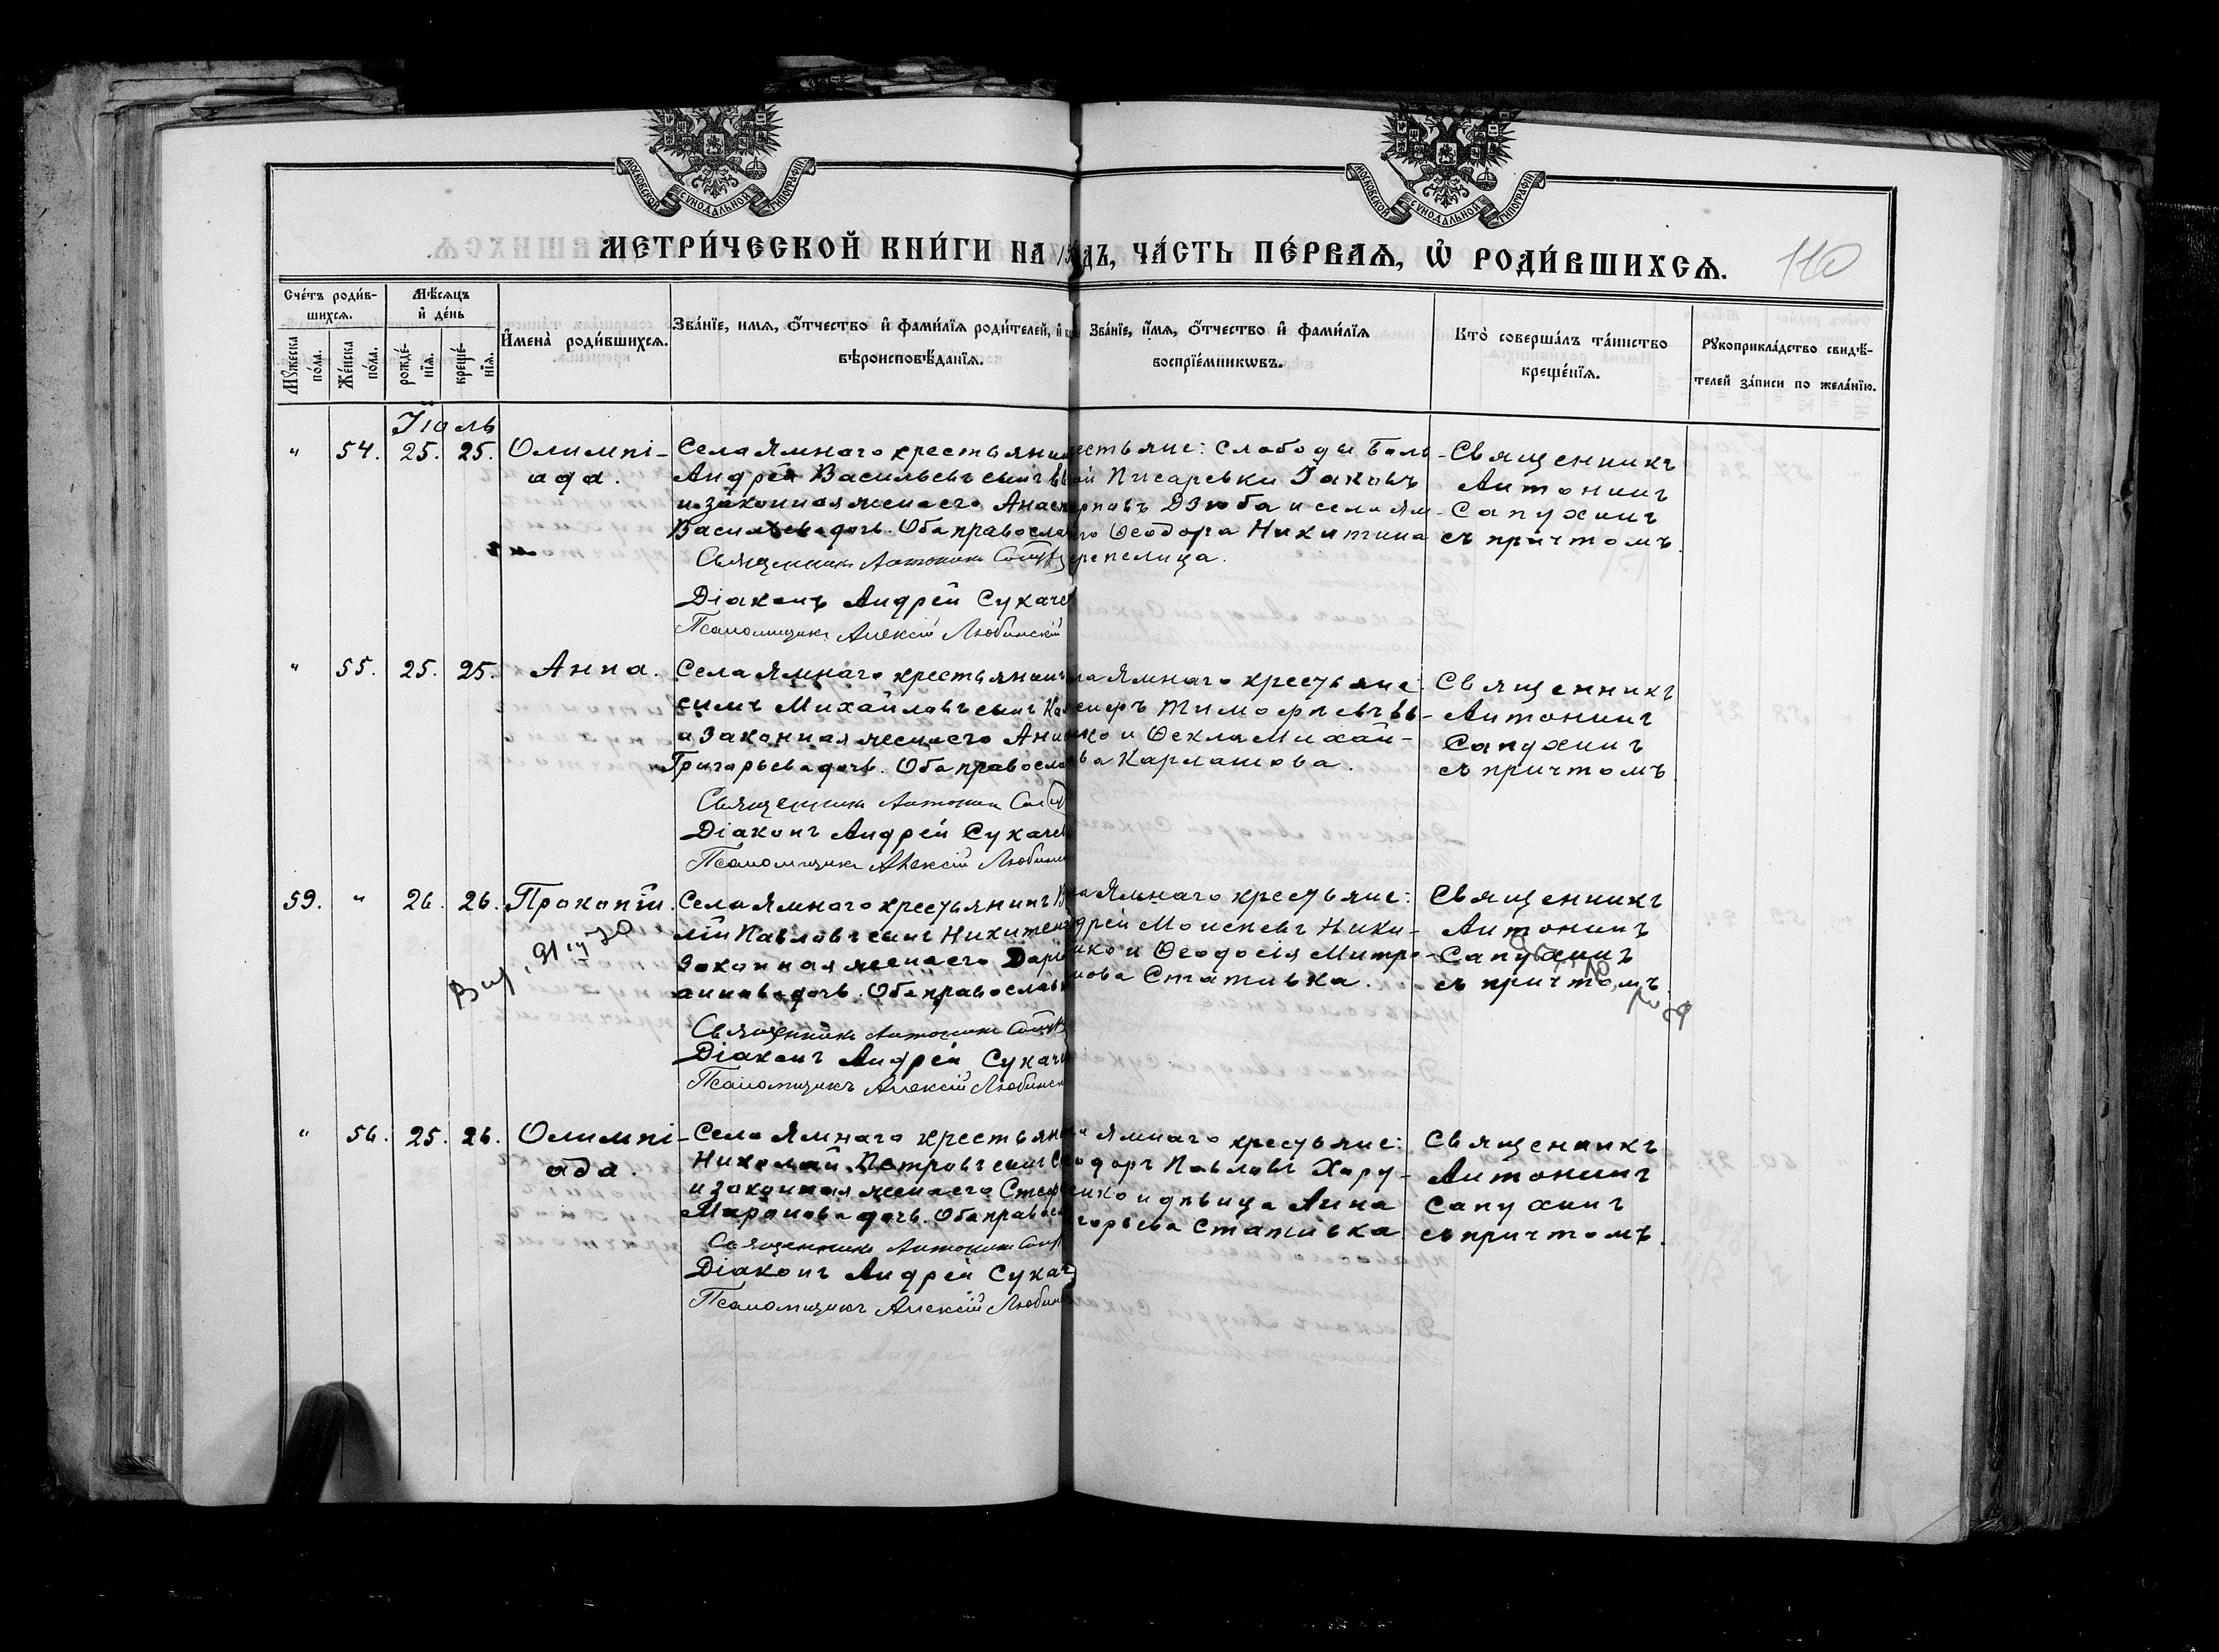 МОСКОВСКОЙ СѴНОДАЛЬНОЙ ТИПОГРАФІИ
МОСКОВСКОЙ СѴНОДАЛЬНОЙ ТИПОГРАФІИ
МЕТРИ́ЧЕСКОЙ КНИ́ГИ НА ДЪ, ЧА́СТЬ ПЕ́РВАѦ, Ѡ҆ РОДИ́ВШИХСѦ.
110
Сче́тъ роди́в-
шихся.
Мѣ́сяцъ
и҆ де́нь
Мꙋжеска по́ла.
Же́нска по́ла.
рожде́-
нїя.
креще́-
нїя.
И҆мена̀ роди́вшихся.
Зва́нїе, имя, ѻ҆́тчество и҆ фами́лїя роди́телей, и҆
вѣроисповѣ́данїя.
Зва́нїе, и҆́мя, ѻ҆́тчество и҆ фами́лїя
воспрїе́мникѡвъ.
Кто̀ соверша́лъ та́инство
креще́нїя.
Рꙋкоприкла́дство свидѣ́-
телей за́писи по жела́нїю.
Іюль
" 54. 25. 25. Олимпі-
ада.
Села Ямнаго крестьянин
Андрей Васильевъ сынъ
и законная жена его Анас
Васильева дочь. Оба православ
Священникъ Антонин
Діаконъ Андрей Сукаче
Псаломщикъ Алексій Любинскій
естьяне: Слободы Боль-
ой Писаревки Іаковъ
рповъ Дзюба и села Ям-
го Ѳеодора Никитина
ерепелица.
Священникъ
Антонинъ
Сапухинъ
съ причтомъ.
" 55. 25. 25. Анна.
Села Ямнаго крестьянинъ
симъ Михайловъ сынъ Ка
и законная жена его Анн
Григорьева дочь. Оба правосла
Священникъ Антонин
Діаконъ Андрей Сукаче
Псаломщикъ Алексій Любинск
ла Ямнаго крестьяне:
Тимоѳеевъ
ко и Ѳекла Михай-
ва Карлашова.
Священникъ
Антонинъ
Сапухинъ
съ причтомъ
59. " 26. 26. Прокопій.
Села Ямнаго крестьянинъ В
лій Павловъ сынъ Никитен
Законная жена его Дарі
анива дочь. Оба православ
Священникъ Антонин
Діаконъ Андрей Сукаче
Псаломщикъ Алексій Любинск
ла Ямнаго крестьяне:
дрей Моисеевъ Ники-
нко и Ѳеодосія Митро-
нова Стативка.
Священникъ
Антонинъ
Сапухинъ
съ причтомъ.
" 56. 25. 26. Олимпі-
ада.
Села Ямнаго крестьян
Николай Петровъ сынъ С
и законная жена его Стеф
Миронова дочь. Оба правос
Священникъ Антонин
Діаконъ Андрей Сукач
Псаломщикъ Алексій Любин
а Ямнаго крестьяне:
одоръ Павловъ Хару-
нко и дѣвица Анна
горьева Стативка
Священникъ
Антонинъ
Сапухинъ
съ причтомъ.